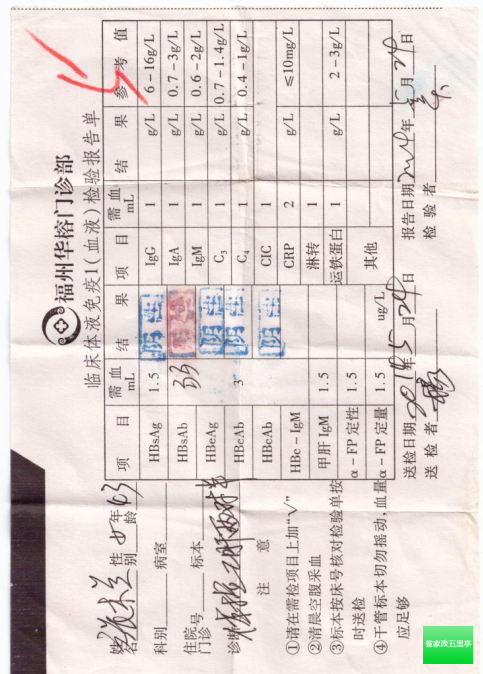 福州华榕门诊部
临床体液免疫1（血液）检验报告单
姓名 性别 女 年龄 43
科别 病室
住院门诊号 标本
诊断
注 意
①请在需检项目上加“√”
②清晨空腹采血
③标本按床号核对检验单按时送检
④干管标本切勿摇动，血量应足够
项 目 需血mL 结 果 项 目 需血mL 结 果 参 考 值
HBsAg 1.5 阴性 IgG 1 g/L 6－16g/L
HBsAb IgA 1 g/L 0.7－3g/L
HBeAg 阴性 IgM 1 g/L 0.6－2g/L
HBeAb 3 阴性 C₃ 1 g/L 0.7－1.4g/L
C₄ 1 g/L 0.4－1g/L
HBcAb 阴性 CIC 1
HBc－IgM CRP 2 g/L ≤10mg/L
甲肝 IgM 1.5 淋转 1
α－FP 定性 1.5 运铁蛋白 1 g/L 2－3g/L
α－FP 定量 1.5 ug/L 其他
送检日期 2014年5月24日 报告日期 2014年5月24日
送检者 检验者
省家政五里亭